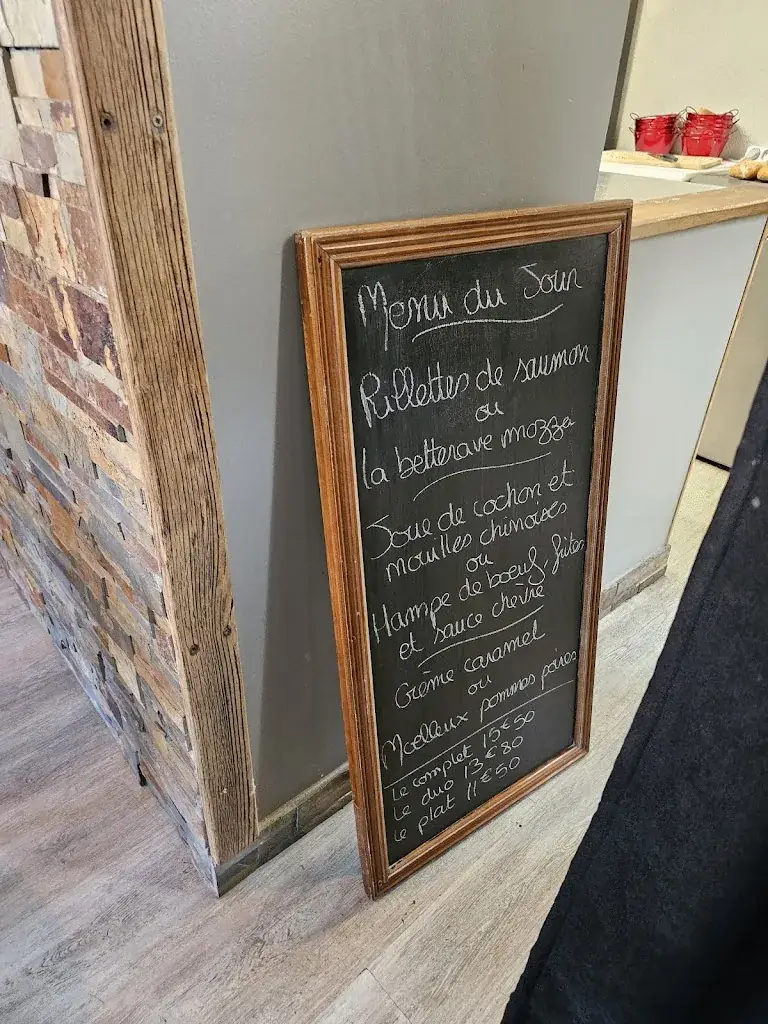 Menu du Jour
Rillettes de saumon
ou
la betterave mozza
Joue de cochon et
nouilles chinoises
ou
Hampe de boeuf, frites
et sauce chèvre
Crème caramel
ou
Moelleux pommes poires
Le complet 15€50
Le duo 13€80
Le plat 11€50